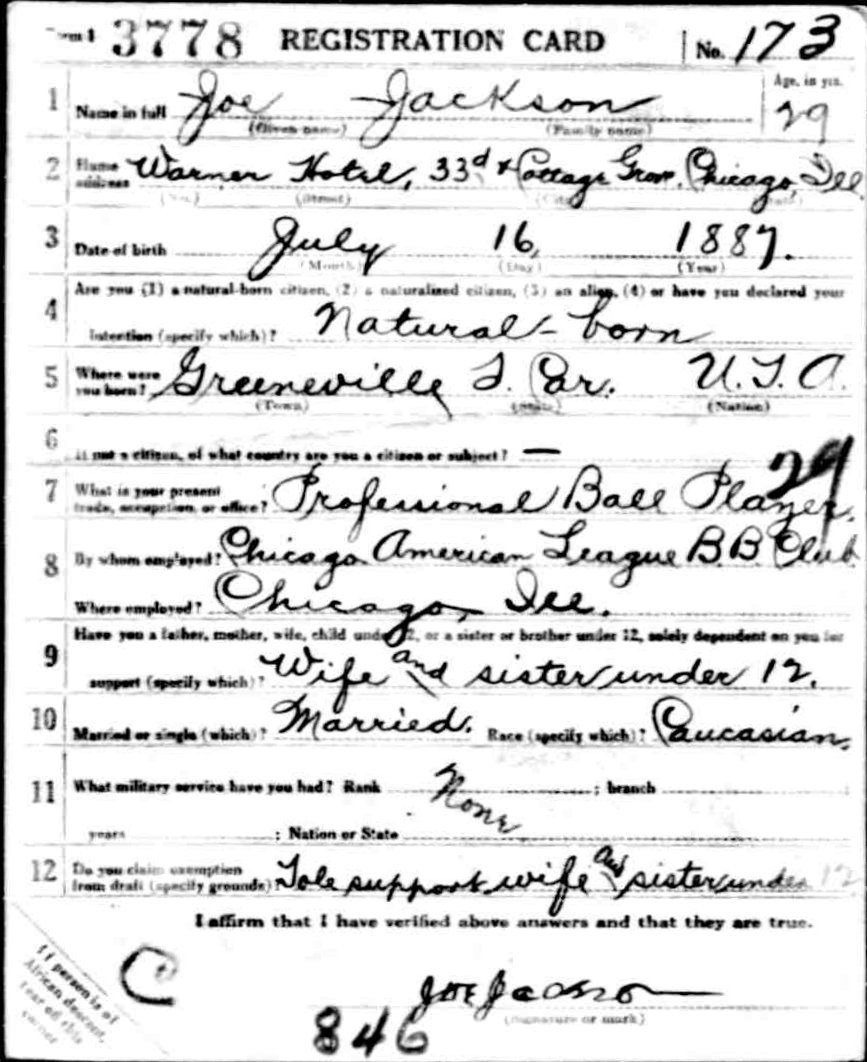 Form 1 3778 REGISTRATION CARD No. 173
1 Name in full Joe Jackson Age, in yrs. 29
(Given name) (Family name)
2 Home address Warner Hotel, 33d & Cottage Grove, Chicago, Ill.
(No.) (Street) (City) (State)
3 Date of birth July 16, 1887.
(Month) (Day) (Year)
4 Are you (1) a natural-born citizen, (2) a naturalized citizen, (3) an alien, (4) or have you declared your
intention (specify which)? Natural-born
5 Where were you born? Greeneville S. Car. U.S.A.
(Town) (State) (Nation)
6 If not a citizen, of what country are you a citizen or subject? —
29
7 What is your present trade, occupation, or office? Professional Ball Player.
8 By whom employed? Chicago American League B.B. Club
Where employed? Chicago, Ill.
9 Have you a father, mother, wife, child under 12, or a sister or brother under 12, solely dependent on you for
support (specify which)? Wife and sister under 12.
10 Married or single (which)? Married. Race (specify which)? Caucasian.
11 What military service have you had? Rank None ; branch
years ; Nation or State
12 Do you claim exemption from draft (specify grounds)? Sole support wife and sister under 12
I affirm that I have verified above answers and that they are true.
If person is of
African descent,
tear off this
corner
C
Joe Jackso
(Signature or mark)
846